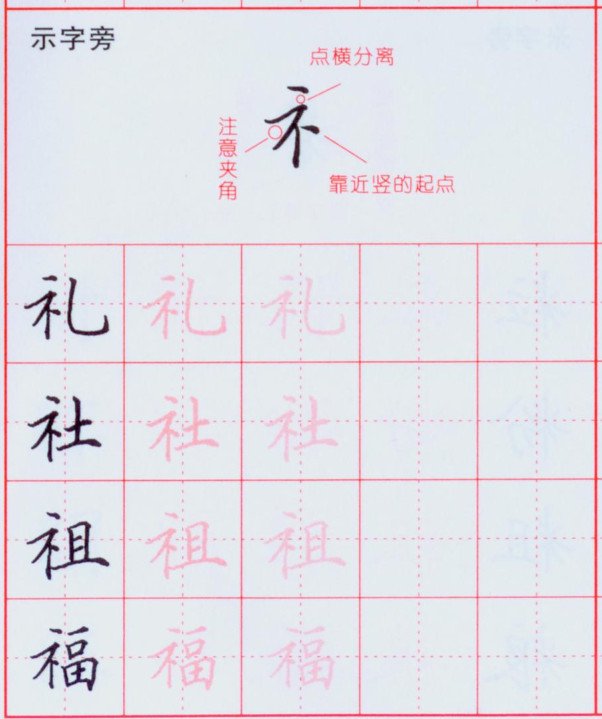 示字旁
点横分离
礻
注意夹角
靠近竖的起点
礼 礼 礼
社 社 社
祖 祖 祖
福 福 福